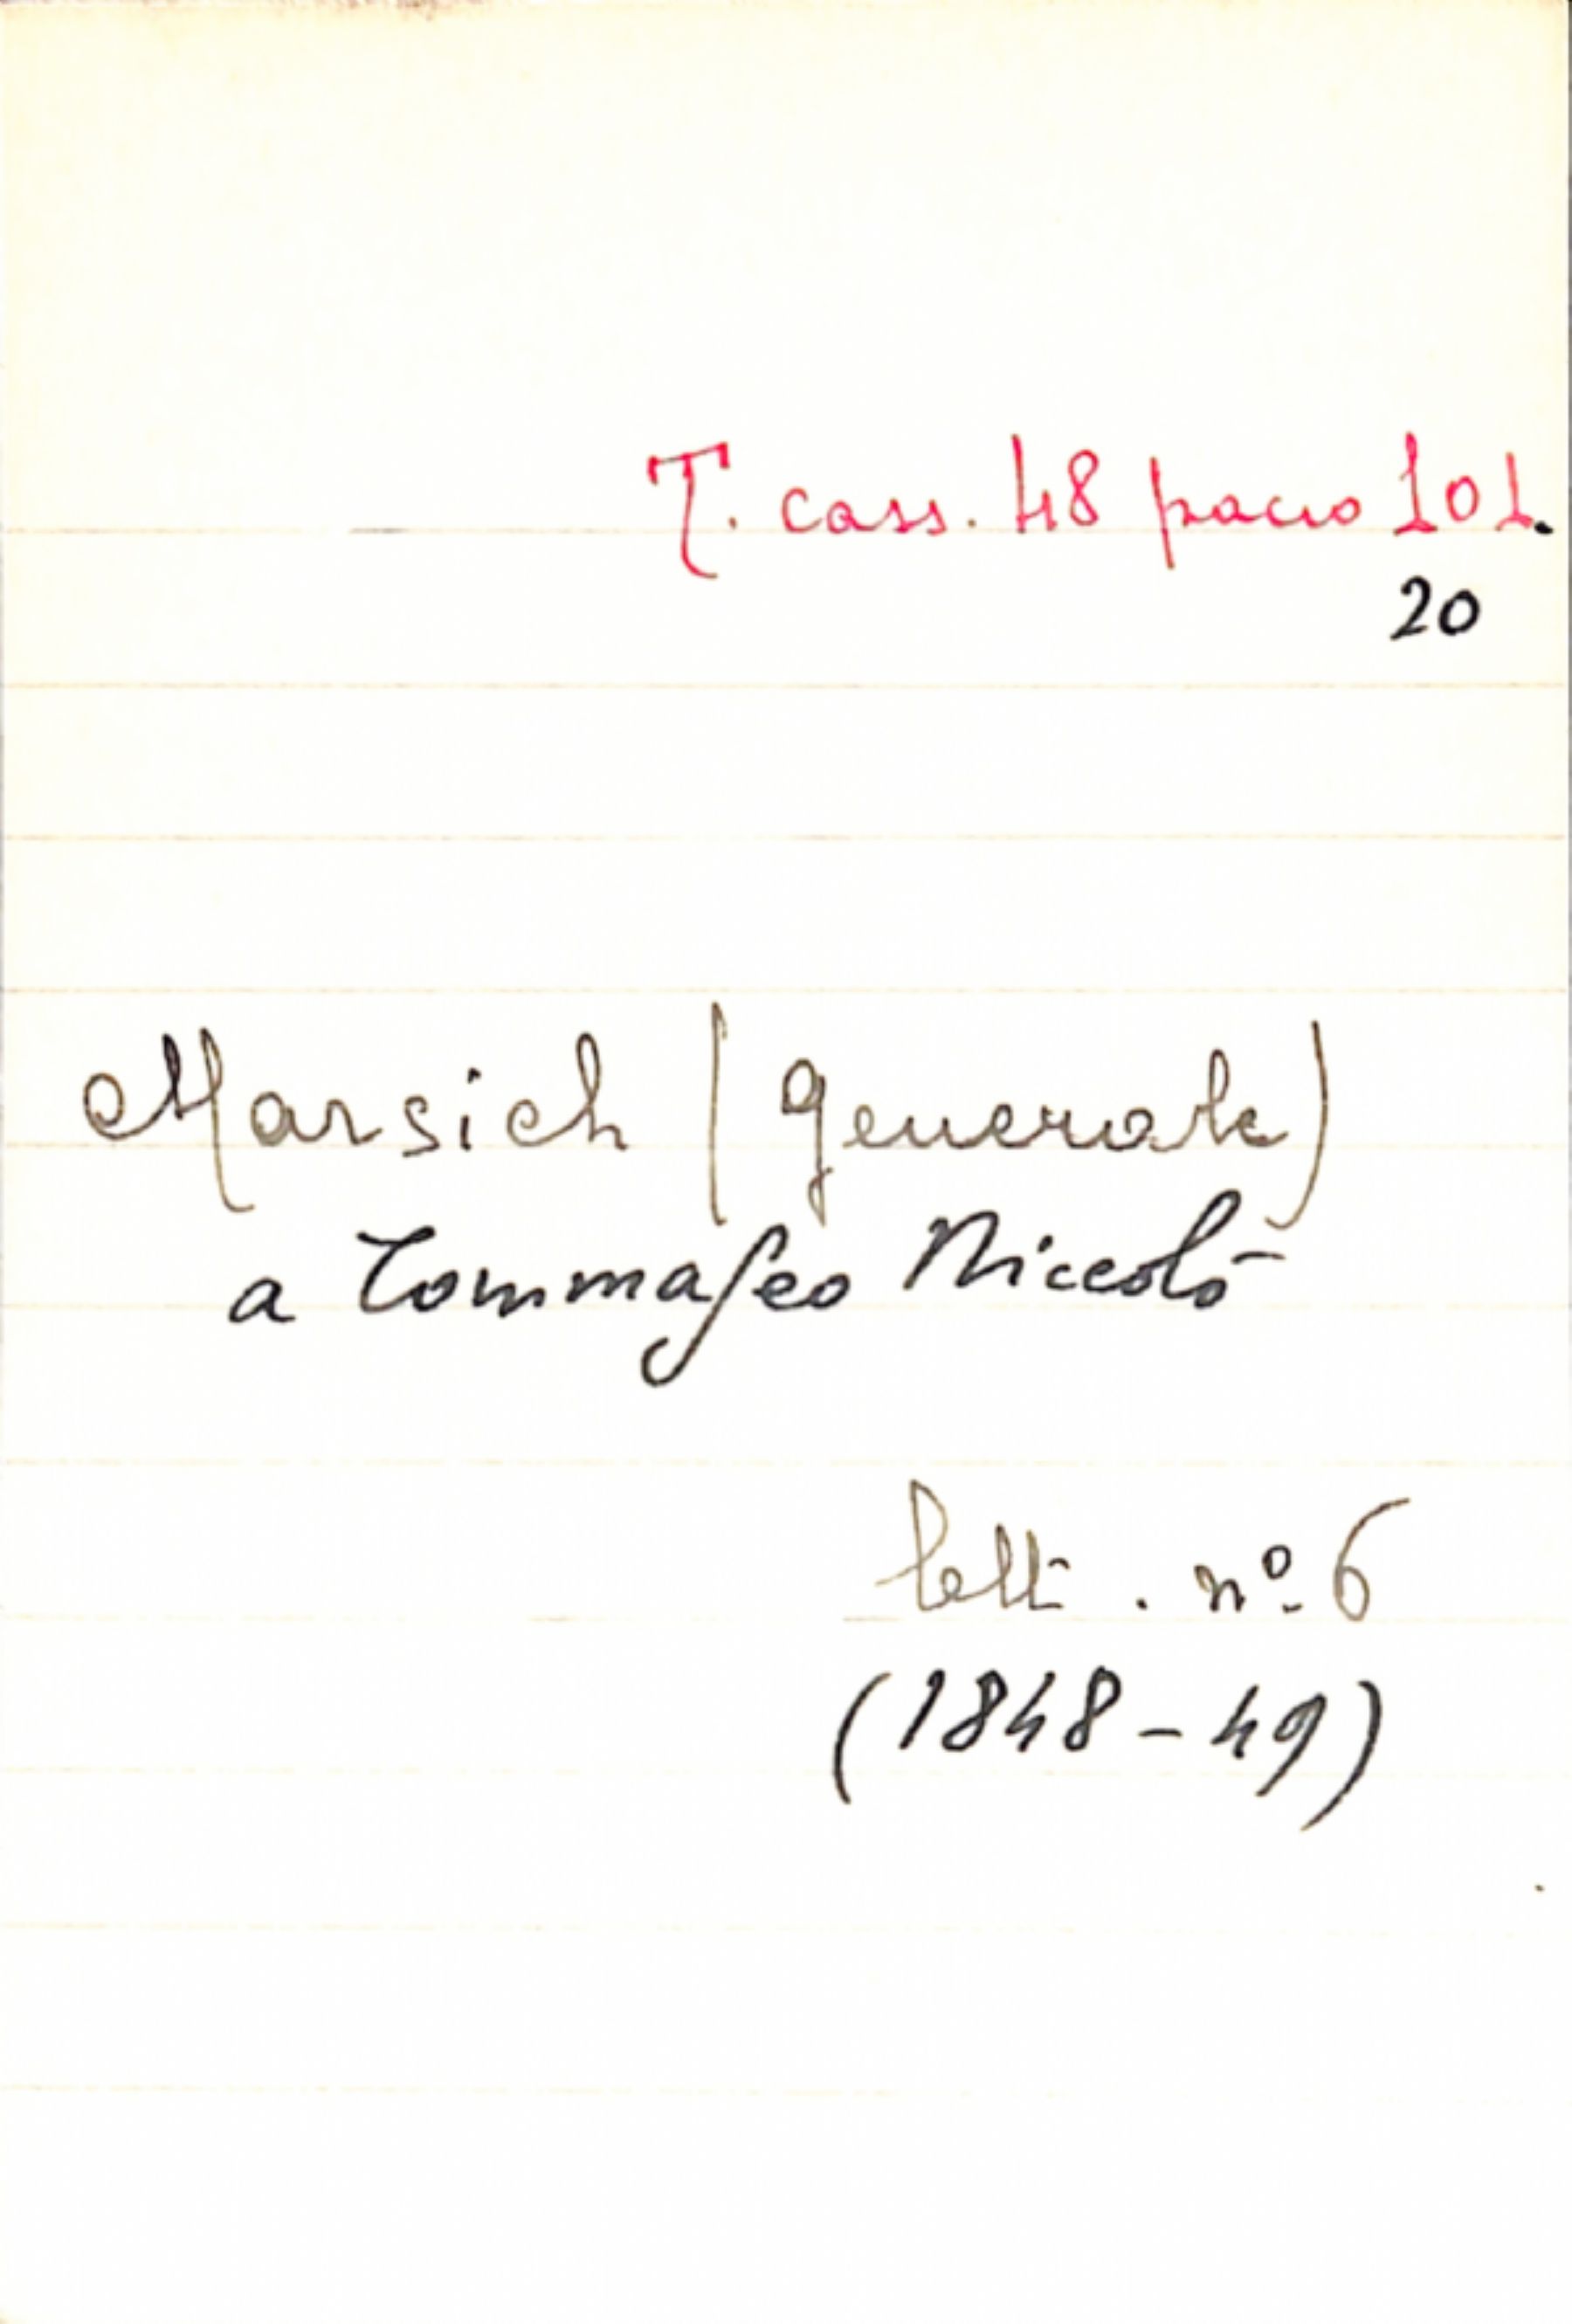 T. cass. 48 pacco 101.
20
Marsich (generale)
a Tommaseo Niccolò
lett. nº 6
(1848-49)